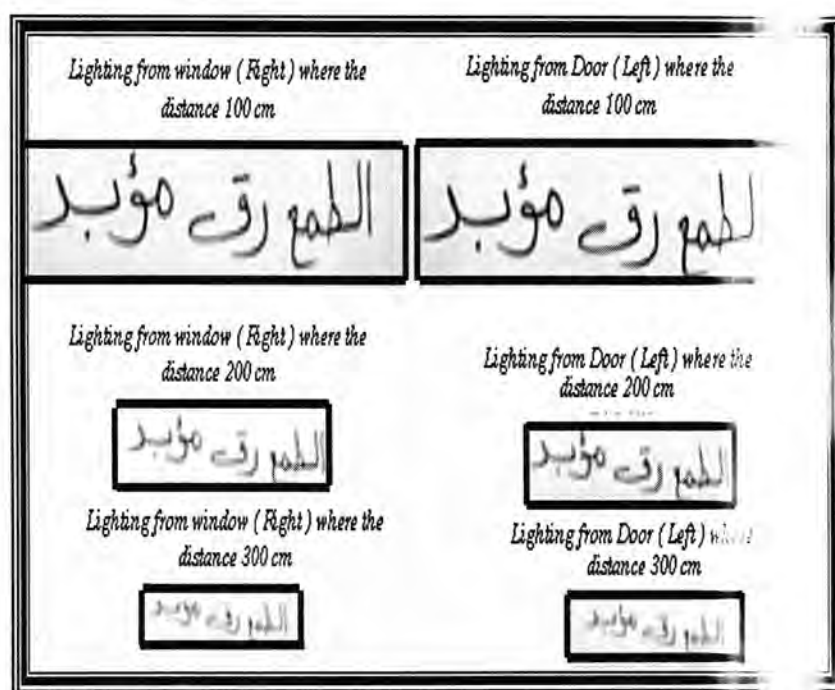 Lighting from window ( Right ) where the
distance 100 cm
الطمع رق مؤبد
Lighting from Door ( Left ) where the
distance 100 cm
الطمع رق مؤبد
Lighting from window ( Right ) where the
distance 200 cm
الطمع رق مؤبد
Lighting from Door ( Left ) where the
distance 200 cm
الطمع رق مؤبد
Lighting from window ( Right ) where the
distance 300 cm
الطمع رق مؤبد
Lighting from Door ( Left ) where
distance 300 cm
الطمع رق مؤبد